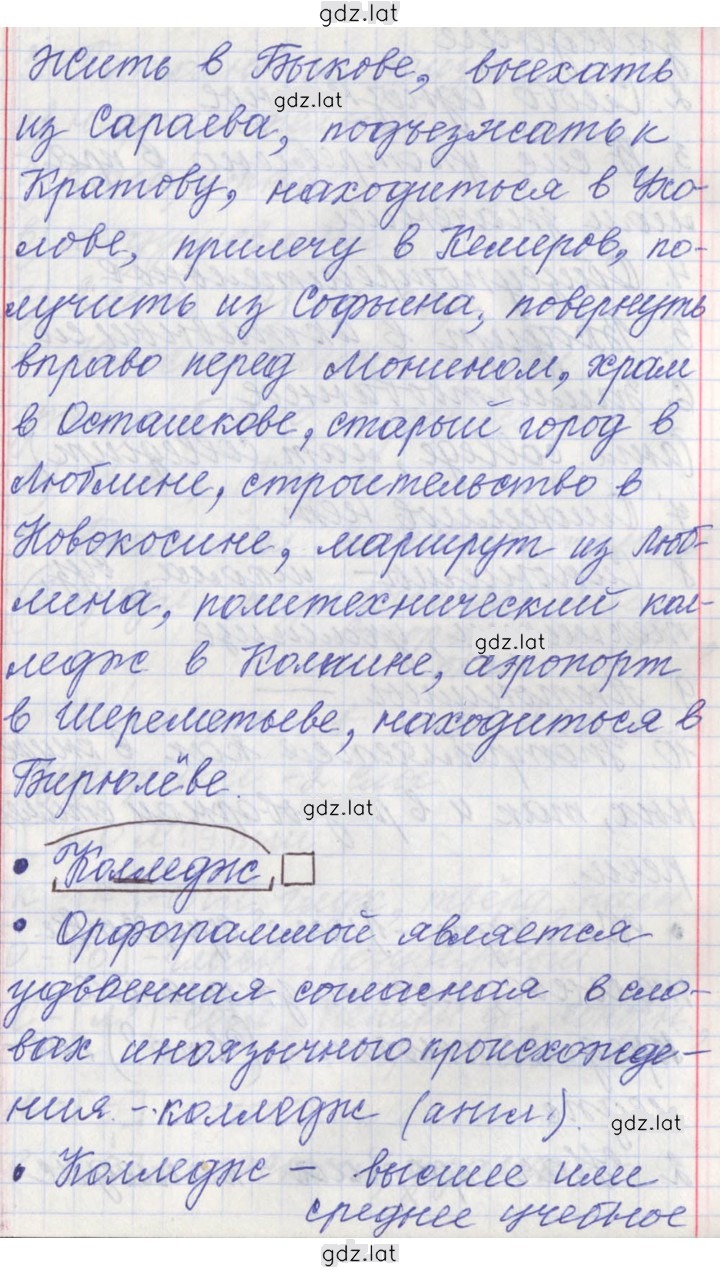 gdz.lat
Жить в Быкове, выехать
gdz.lat
из Сараева, подъезжать к
Кратову, находиться в Ухо-
лове, прилечу в Кемеров, по-
лучить из Софьина, повернуть
вправо перед Монином, храм
в Осташкове, старый город в
Люблине, строительство в
Новокосине, маршрут из Люб-
лина, политехнический кол-
gdz.lat
ледж в Колпине, аэропорт
в Шереметьеве, находиться в
Бирюлёве.
gdz.lat
• Колледж
• Орфограммой является
удвоенная согласная в сло-
вах иноязычного происхожде-
ния - колледж (англ.).
gdz.lat
• Колледж - высшее или
среднее учебное
gdz.lat